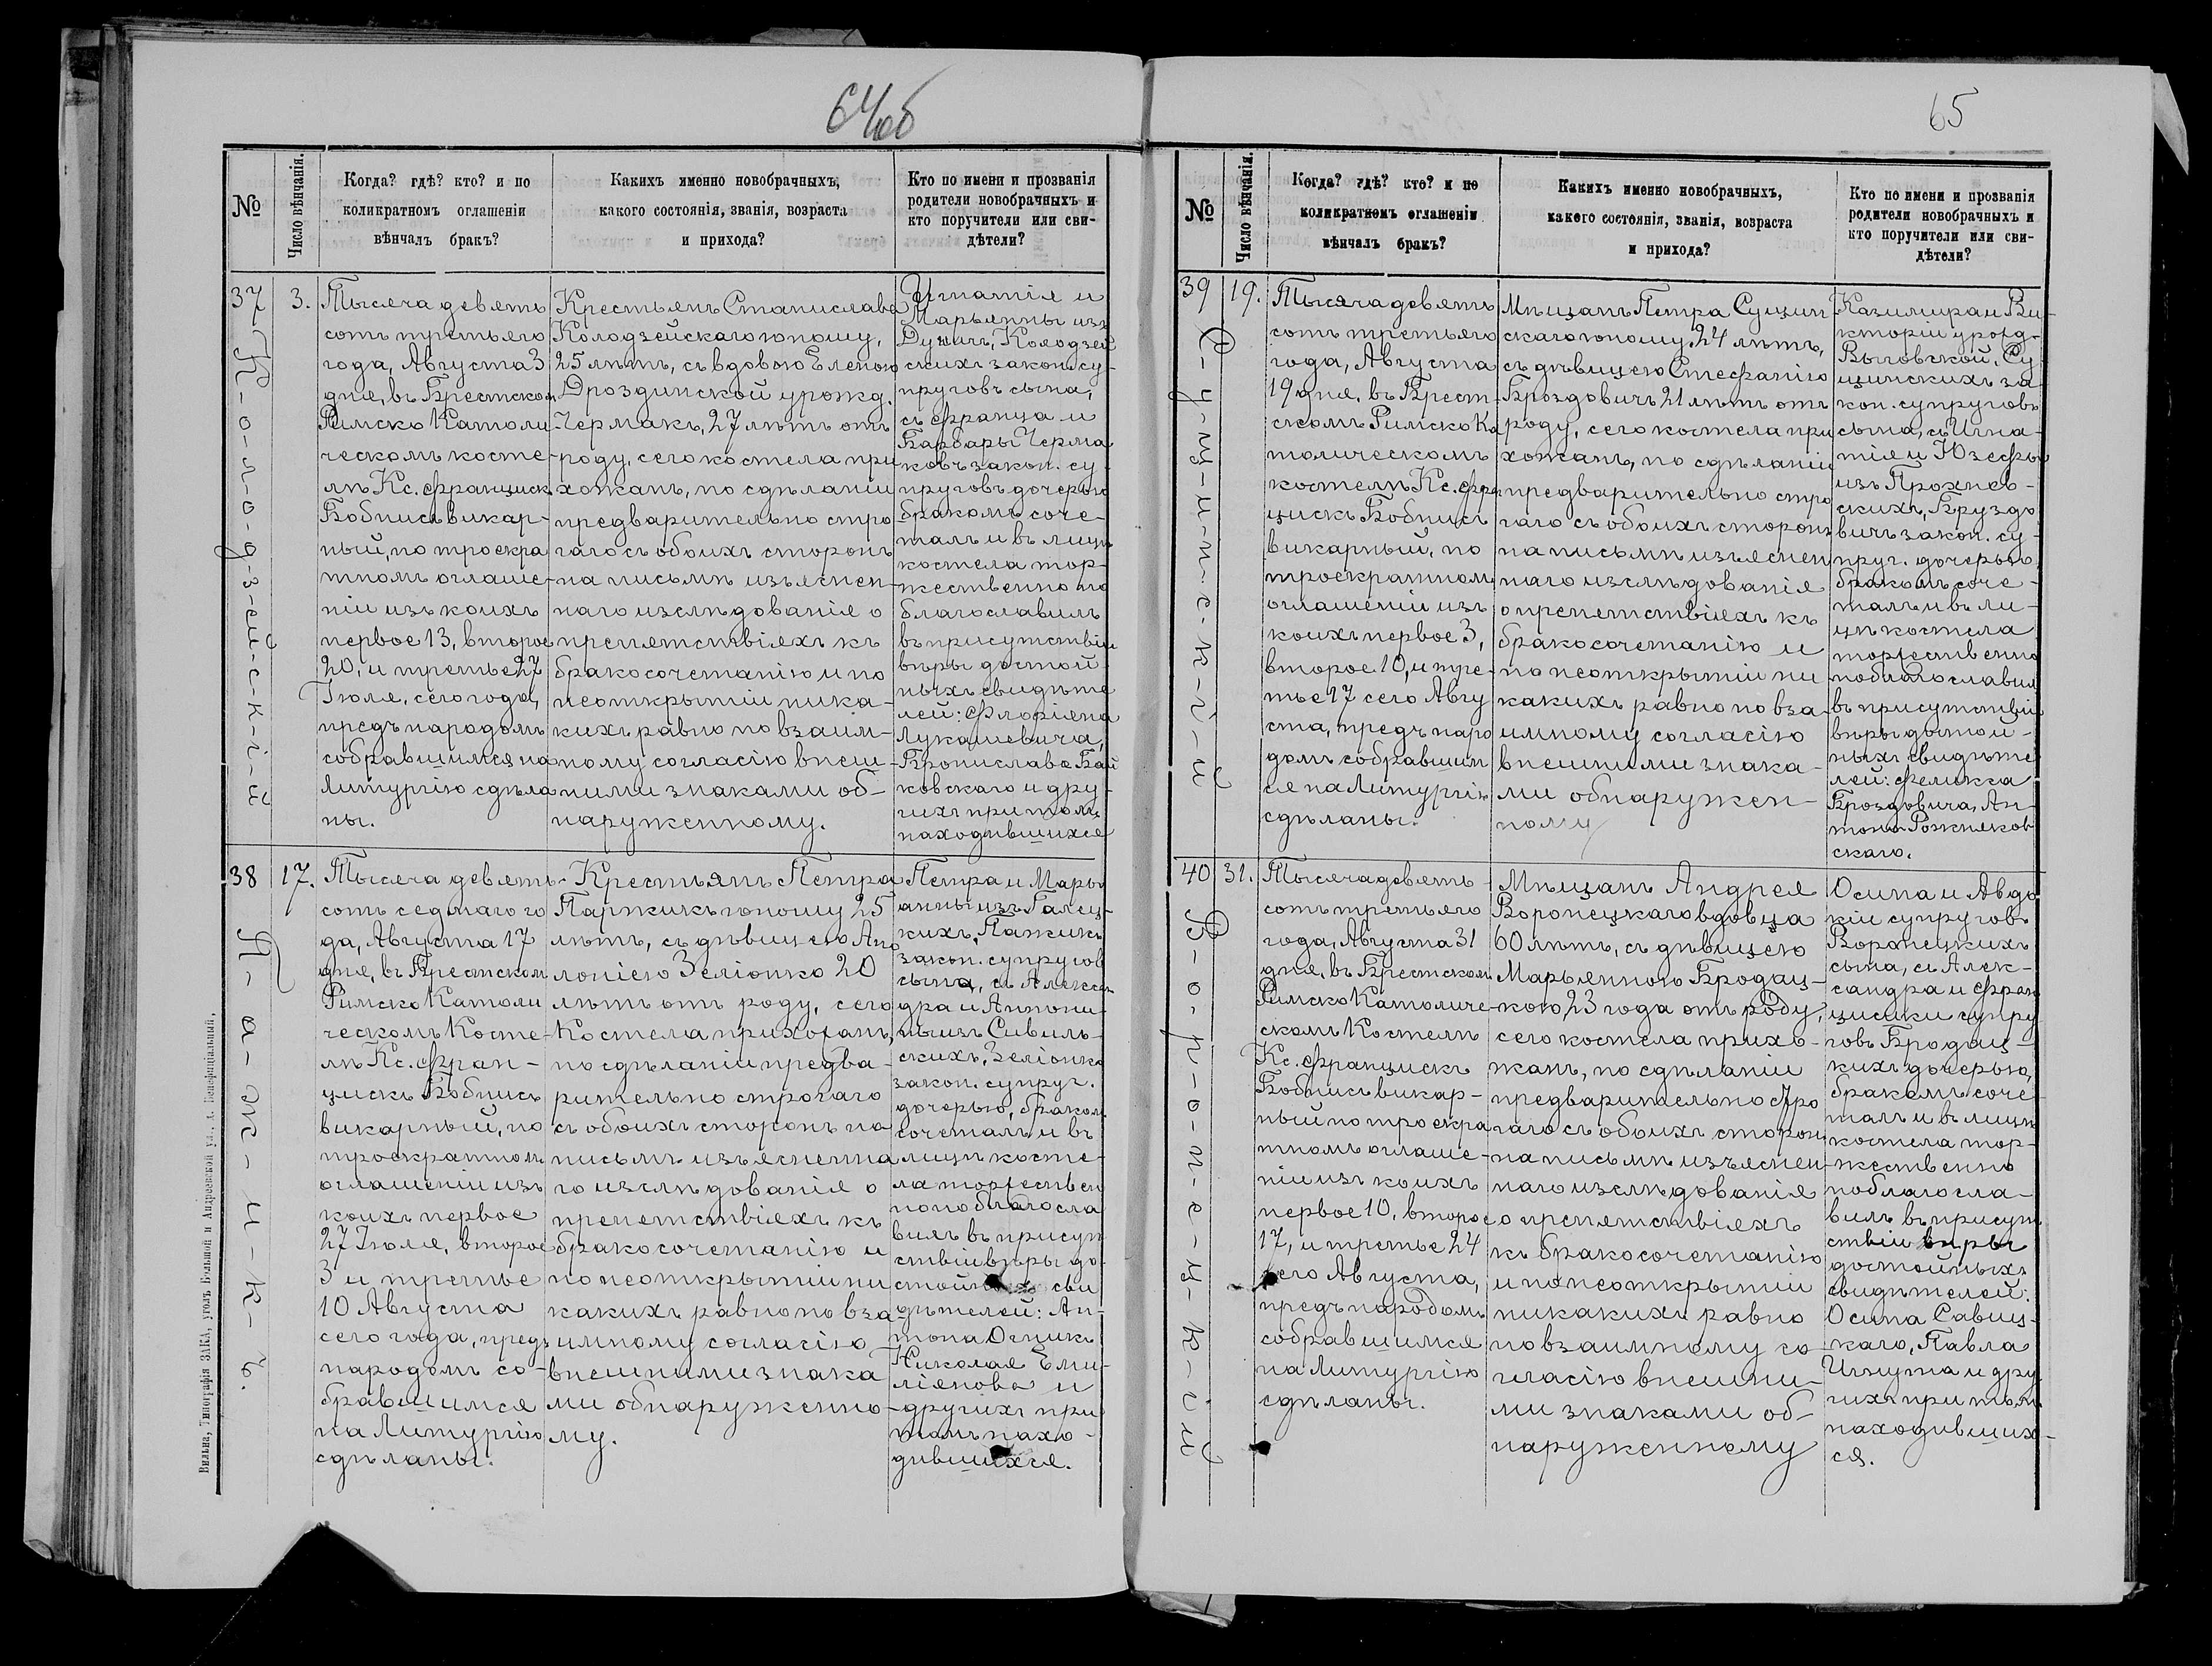 64об
№
Число вѣнчанія.
Когда? гдѣ? кто? и по
коликратномъ оглашеніи
вѣнчалъ бракъ?
Какихъ именно новобрачныхъ,
какого состоянія, званія, возраста
и прихода?
Кто по имени и прозванія
родители новобрачныхъ и
кто поручители или сви-
дѣтели?
37
К-о-л-о-д-з-ей-с-к-і-й
3.
Тысяча девять
сотъ третьяго
года, Августа 3
дня, въ Брестском
Римско Католи
ческомъ косте-
лѣ Кс. Францискъ
Бобнисъ викар-
ный, по троекра
тномъ оглаше-
ніи изъ коихъ
первое 13, второе
20, и третье 27
Іюля, сего года,
предъ народомъ
собравшимся на
Литургію сдѣла
ны.
Крестьянъ Станислава
Колодзейскаго юношу,
25 лѣтъ, съ вдовою Еленою
Дроздинской урожд.
Чермакъ, 27 лѣтъ отъ
роду, сего костела при
хожанъ, по сдѣланіи
предварительно стро
гаго съ обоихъ сторонъ
на письмѣ изъяснен-
наго изслѣдованія о
препятствіяхъ къ
бракосочетанію и по
неоткрытіи ника-
кихъ равно по взаим-
ному согласію внеш-
ними знаками об-
наруженному.
Игнатія и
Марьянны изъ
Колодзей
скихъ закон. су-
пруговъ сына,
съ Франца и
Барбары Черма
ковъ закон. су-
пруговъ дочерью
бракомъ соче-
талъ и въ лицѣ
костела тор-
жественно по
благославилъ
въ присутствіи
вѣры достой-
ныхъ свидѣте
лей: Флоріяна
Лукашевича,
Брониславa Бай
ковскаго и дру-
гихъ при томъ
находившихся
38
П-а-ж-и-к-ъ.
17.
Тысяча девять-
сотъ седмаго го
да, Августа 17
дня, въ Брестском
Римско Католи
ческомъ Косте-
лѣ Кс. Фран-
цискъ Бобнисъ
викарный, по
троекратном
оглашеніи изъ
коихъ первое
27 Іюля, второе
3 и третье
10 Августа
сего года, предъ
народомъ со-
бравшимся
на Литургію
сдѣланы.
Крестьянъ Петра
юношу 25
лѣтъ, съ дѣвицею Апо
лоніею Зеліонко 20
лѣтъ отъ роду, сего
Костела прихожанъ,
по сдѣланіи предва-
рительно строгаго
съ обоихъ сторонъ на
письмѣ изъясненна
го изслѣдованія о
препятствіяхъ къ
бракосочетанію и
по неоткрытіи ни
какихъ равно по вза
имному согласію
внешними знака
ми обнаруженно-
му.
Петра и Марь
анны изъ Галец-
кихъ, Пажикъ
закон. супругов
сына, съ Алексан
дра и Антони-
ны изъ Сивиль-
скихъ, Зеліонко
закон. супруг.
дочерью, браком
сочеталъ и въ
лицѣ косте-
ла торжествен
но поблагосла
вилъ въ присут
ствіи вѣры до-
стойныхъ сви
дѣтелей: Ан-
тона Огникъ
Николая Еми-
ліянова и
другихъ при
томъ нахо-
дившихся.
Вильна, Типографія ЗАКА, уголъ Большой и Андреевской ул., д. Бенефиціальный.
65
№
Число вѣнчанія.
Когда? гдѣ? кто? и по
коликратномъ оглашеніи
вѣнчалъ бракъ?
Какихъ именно новобрачныхъ,
какого состоянія, званія, возраста
и прихода?
Кто по имени и прозванія
родители новобрачныхъ и
кто поручители или сви-
дѣтели?
39
С-у-щ-и-н-с-к-і-й
19.
Тысяча девять
сотъ третьяго
года, Августа
19 дня, въ Брест-
скомъ Римско Ка
толическомъ
костелѣ Кс. Фра
цискъ Бобнисъ
викарный, по
троекратном
оглашеніи изъ
коихъ первое 3,
второе 10, и тре-
тье 17 сего Авгу
ста, предъ наро
домъ собравшим
ся на Литургію
сдѣланы.
Мѣщанъ Петра Сущин
скаго юношу 24 лѣтъ,
съ дѣвицею Стефанію
Броздовичъ 21 лѣтъ отъ
роду, сего костела при
хожанъ, по сдѣланіи
предварительно стро
гаго съ обоихъ сторонъ
на письмѣ изъяснен
наго изслѣдованія
о препятствіяхъ къ
бракосочетанію и
по неоткрытіи ни
какихъ равно по вза-
имному согласію
внешними знака-
ми обнаружен-
ному
Казимира и Ви-
кторіи урожд-
Выговской, Су
щинскихъ за-
кон. супруговъ
сына, съ Игна-
тія и Юзефы
изъ
скихъ, Бруздо
вичъ закон. су-
пруг. дочерью
бракомъ соче-
талъ и въ ли-
цѣ костела
торжественно
поблагославил
въ присутствіи
вѣры достой-
ныхъ свидѣте
лей: Феликса
Броздовича, Ан-
тона Рожняков
скаго.
40
В-о-р-о-н-е-ц-к-ій
31.
Тысяча девять-
сотъ третьяго
года, Августа 31
дня, въ Брестском
Римско Католиче-
скомъ Костелѣ
Кс. Францискъ
Бобнисъ викар-
ный по троекра
тномъ оглаше-
ніи изъ коихъ
первое 10, второе
17, и третье 24
сего Августа,
предъ народомъ
собравшимся
на Литургію
сдѣланы.
Мѣщанъ Андрея
Воронецкаго вдовца
60 лѣтъ, съ дѣвицею
Марьянною Бродац-
кою, 23 года отъ роду,
сего костела прихо-
жанъ, по сдѣланіи
предварительно стро
гаго съ обоихъ сторон
на письмѣ изъяснен-
наго изслѣдованія
о препятствіяхъ
къ бракосочетанію
и по неоткрытіи
никакихъ равно
по взаимному со-
гласію внешни-
ми знаками об-
наруженному
Осипа и Авдо
кіи супруговъ
Воронецкихъ
сына, съ Алек-
сандра и Фран
цишки супру
говъ Бродац-
кихъ дочерью,
бракомъ соче-
талъ и въ лицѣ
костела тор-
жественно
поблагосла-
вилъ въ присут
ствіи вѣры
достойныхъ
свидѣтелей:
Осипа Савиц-
каго, Павла
Игнута и дру
гихъ при томъ
находивших-
ся.